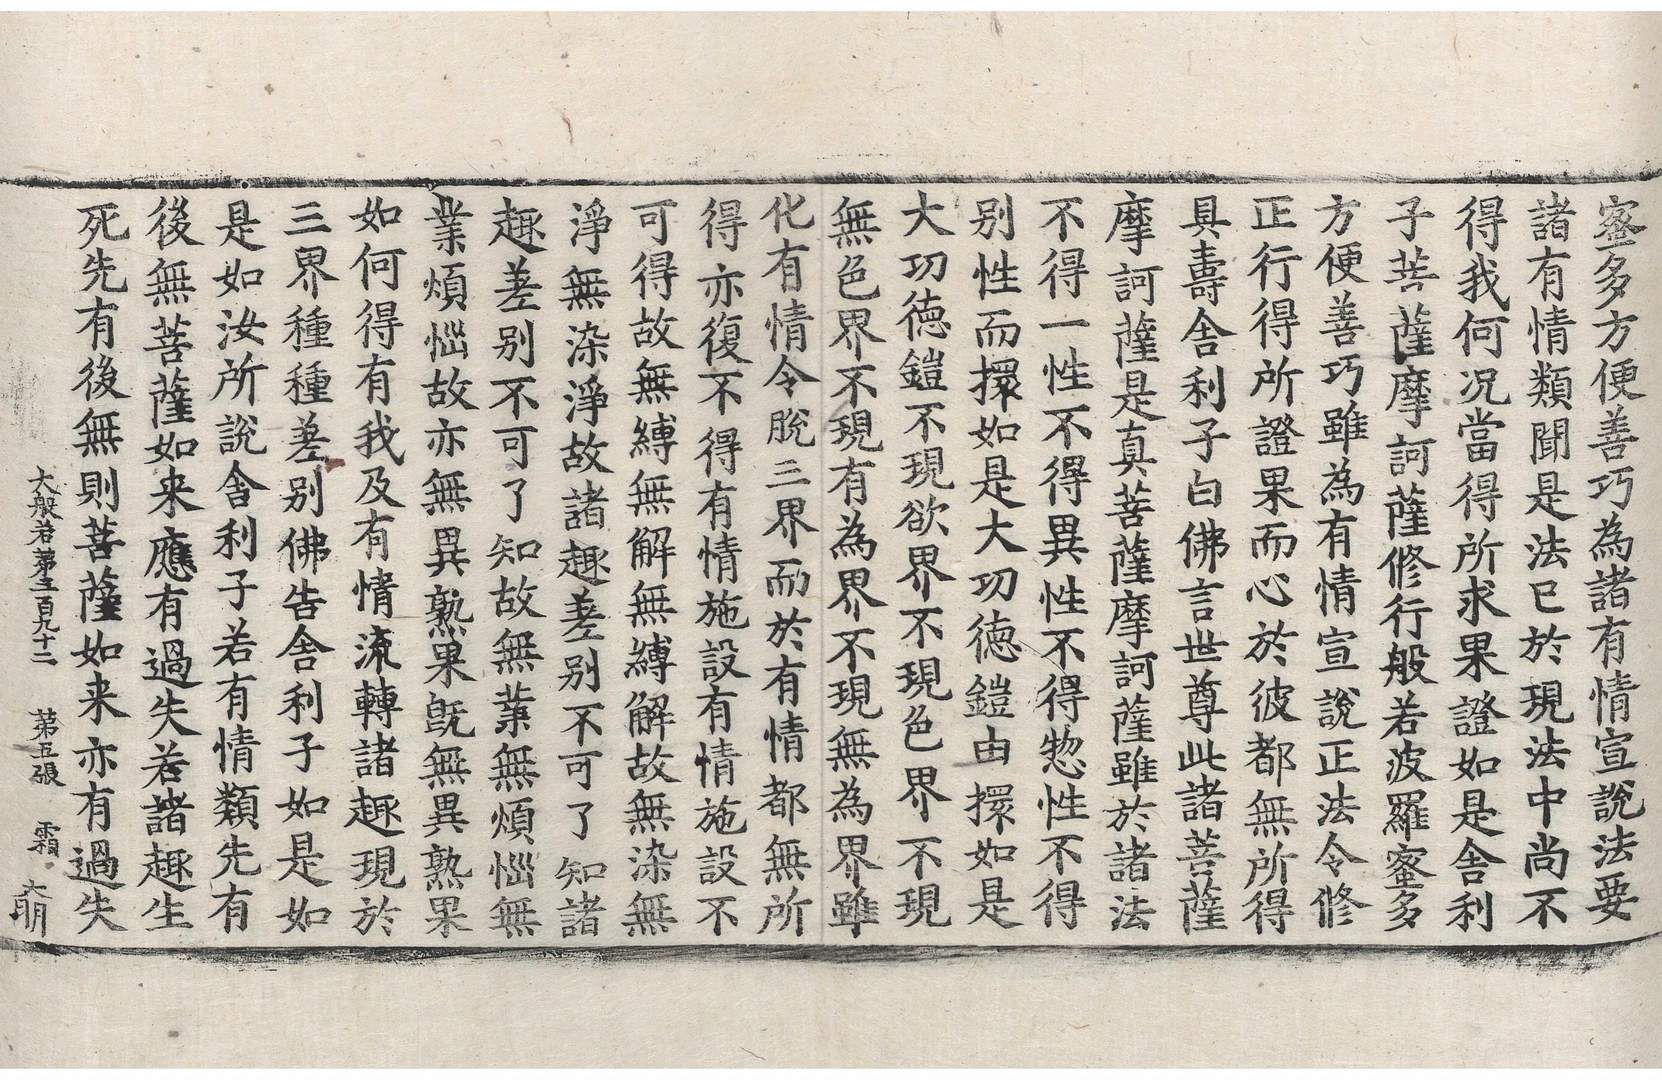 蜜多方便善巧為諸有情宣說法要
諸有情類聞是法已於現法中尚不
得我何況當得所求果證如是舍利
子菩薩摩訶薩修行般若波羅蜜多
方便善巧雖為有情宣說正法令修
正行得所證果而心於彼都無所得
具壽舍利子白佛言世尊此諸菩薩
摩訶薩是真菩薩摩訶薩雖於諸法
不得一性不得異性不得惣性不得
別性而擐如是大功德鎧由擐如是
大功德鎧不現欲界不現色界不現
無色界不現有為界不現無為界雖
化有情令脫三界而於有情都無所
得亦復不得有情施設有情施設不
可得故無縛無解無縛解故無染無
淨無染淨故諸趣差別不可了知諸
趣差別不可了知故無業無煩惱無
業煩惱故亦無異熟果旣無異熟果
如何得有我及有情流轉諸趣現於
三界種種差別佛告舍利子如是如
是如汝所說舍利子若有情類先有
後無菩薩如来應有過失若諸趣生
死先有後無則菩薩如来亦有過失
大般若第三百九十二 第五張 霜 大明